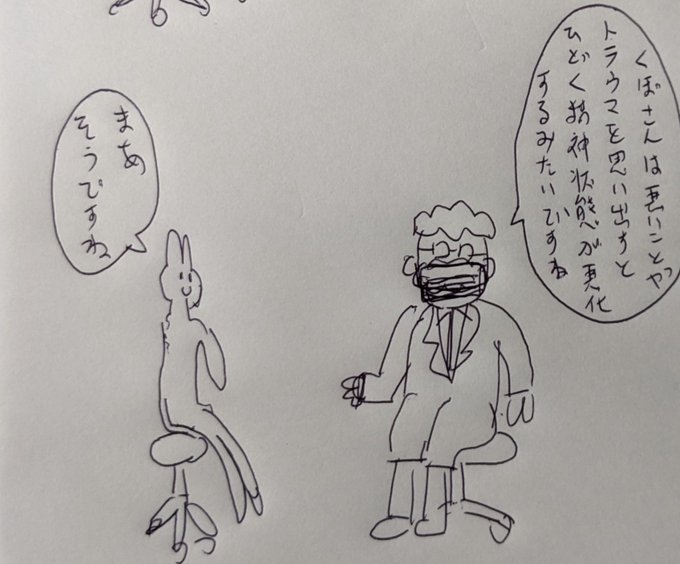 くぼさんは悪いことや
トラウマを思い出すと
ひどく精神状態が悪化
するみたいですね
まあ
そうですね